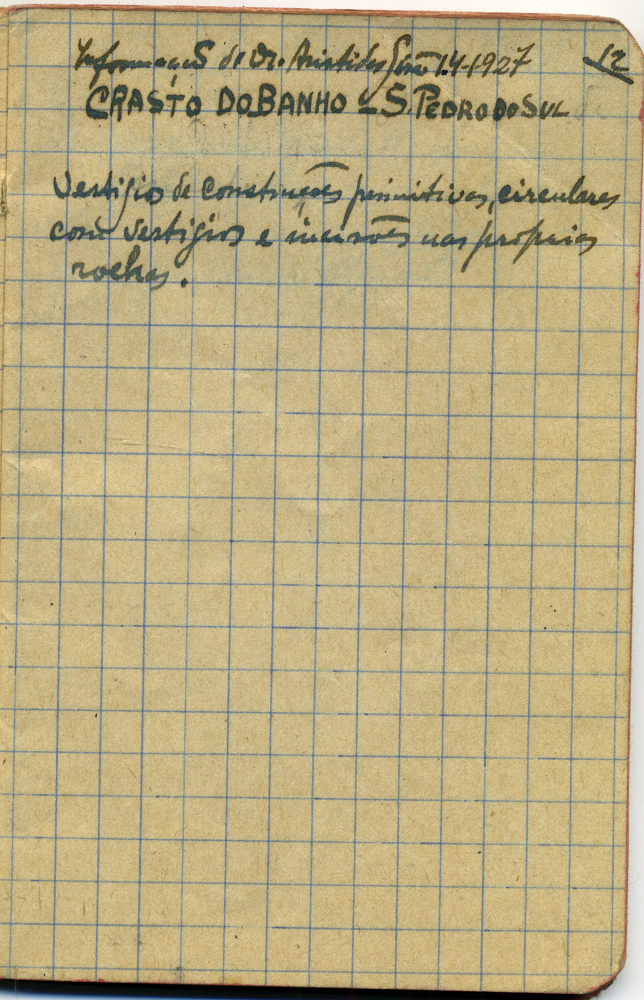 12
Informação do Dr. Aristides 1.4-1927
CRASTO DO BANHO - S. PEDRO DO SUL
Vestigios de construções primitivas, circulares
com vestigios e incisões nas proprias
rochas.